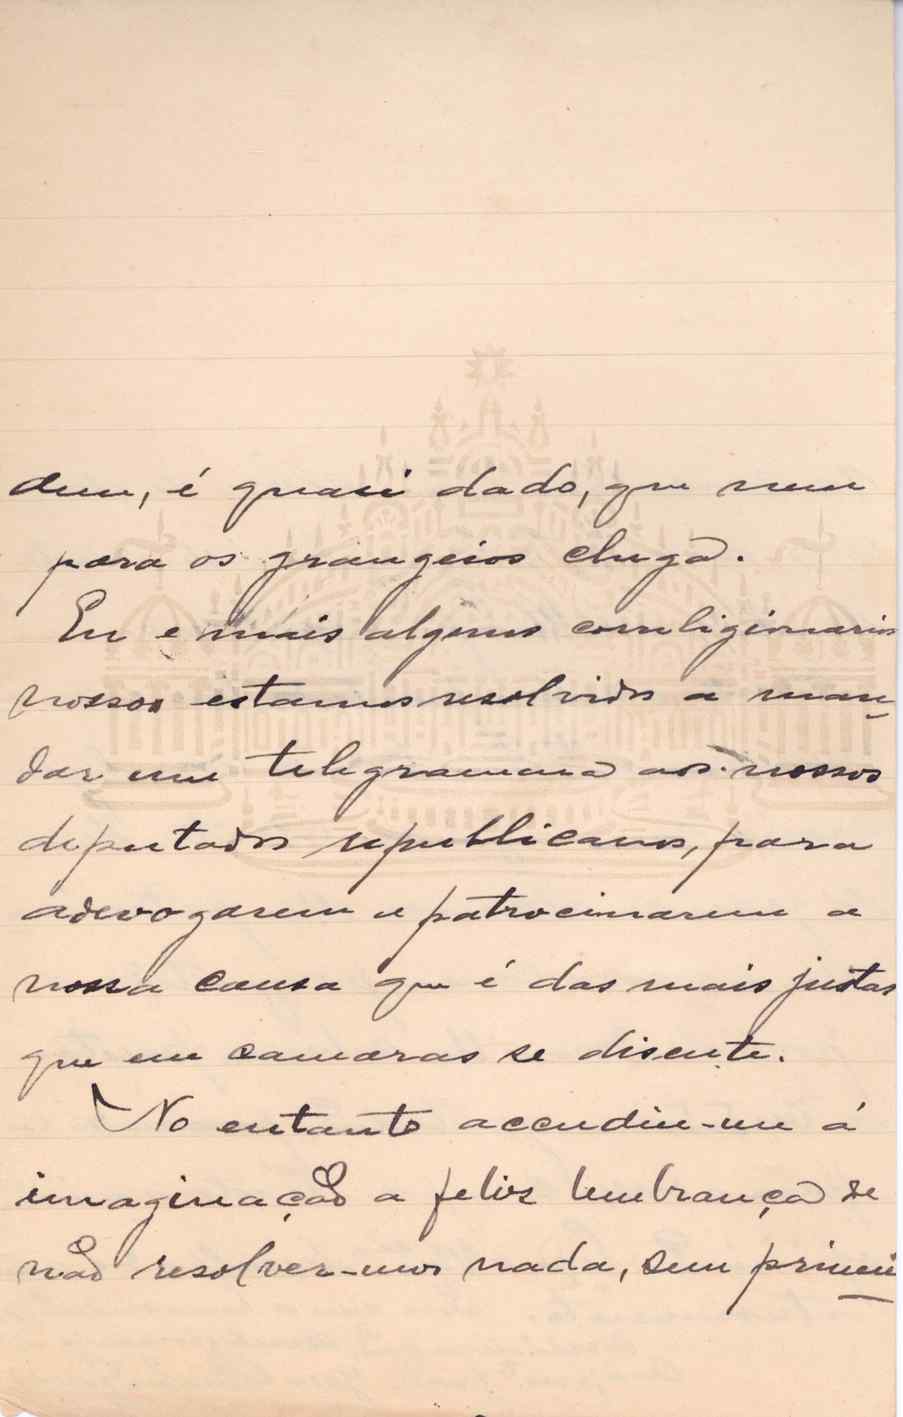 dem, é quasi dado, que nem
para os grangeios chega.
Eu e mais alguns correligionarios
nossos estamos resolvidos a man-
dar um telegramma aos nossos
deputados republicanos, para
adevogarem e patrocinarem a
nossa causa que é das mais justas
que em camaras se discute.
No entanto accudiu-me á
imaginação a felis lembrança de
não resolver-mos nada, sem primei